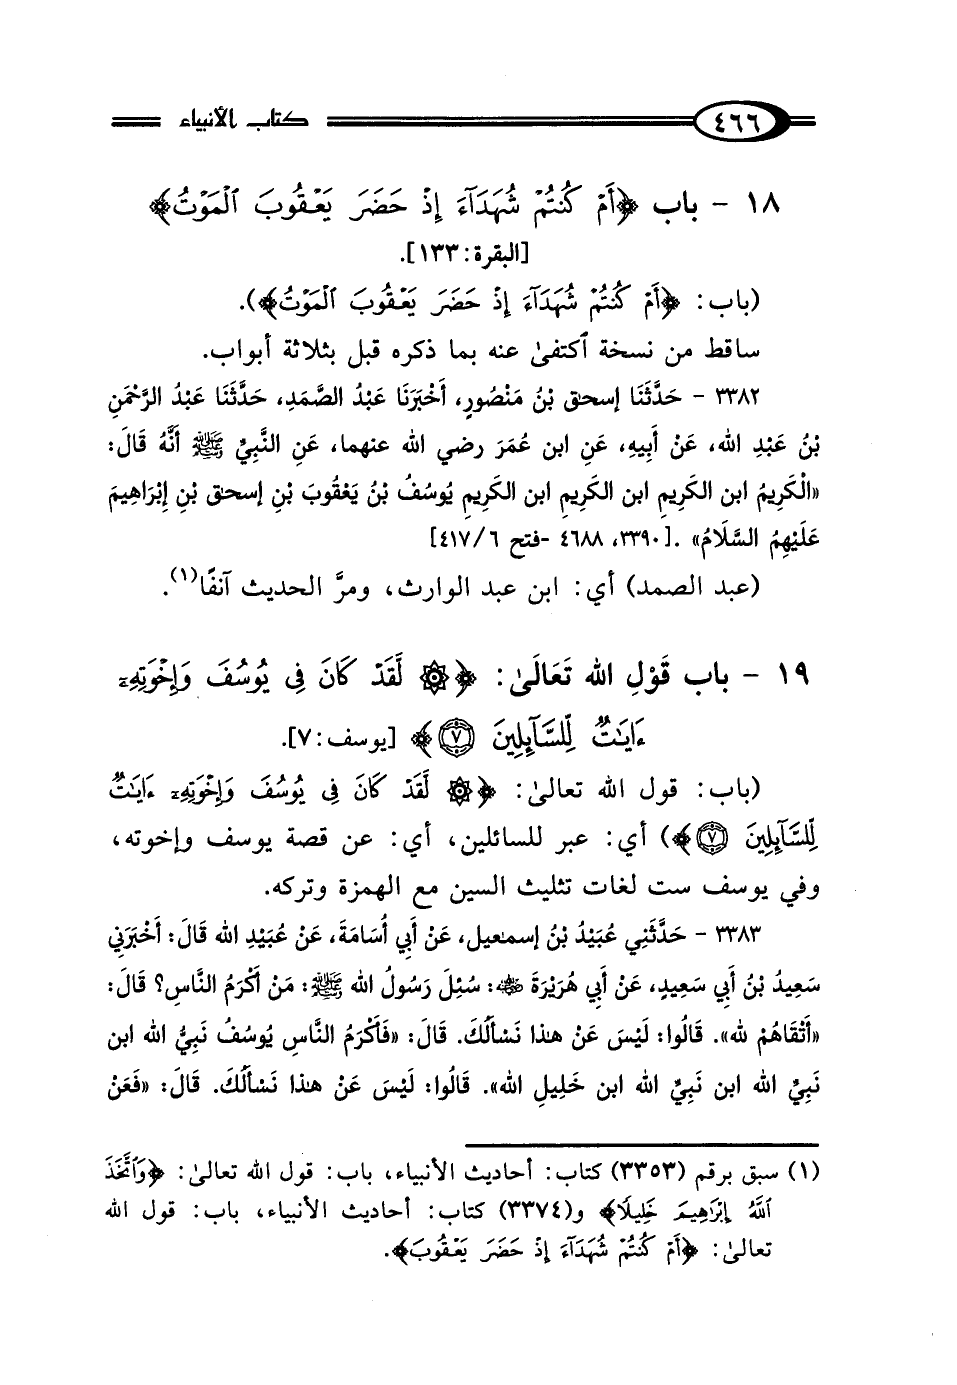 ٤٦٦ كتاب الأنبياء
١٨ - باب ﴿أَمْ كُنتُمْ شُهَدَآءَ إِذْ حَضَرَ يَعْقُوبَ ٱلْمَوْتُ﴾
[البقرة: ١٣٣].
(باب: ﴿أَمْ كُنتُمْ شُهَدَآءَ إِذْ حَضَرَ يَعْقُوبَ ٱلْمَوْتُ﴾).
ساقط من نسخة ٱكتفىٰ عنه بما ذكره قبل بثلاثة أبواب.
٣٣٨٢ - حَدَّثَنَا إسحق بْنُ مَنْصُورٍ، أَخْبَرَنَا عَبْدُ الصَّمَدِ، حَدَّثَنَا عَبْدُ الرَّحْمَنِ
بْنُ عَبْدِ الله، عَنْ أَبِيهِ، عَنِ ابن عُمَرَ رضي الله عنهما، عَنِ النَّبِيِّ ﷺ أَنَّهُ قَالَ:
«الْكَرِيمُ ابن الكَرِيمِ ابن الكَرِيمِ ابن الكَرِيمِ يُوسُفُ بْنُ يَعْقُوبَ بْنِ إسحٰق بْنِ إِبْرَاهِيمَ
عَلَيْهِمُ السَّلَامُ» .[٣٣٩٠، ٤٦٨٨ -فتح ٤١٧/٦]
(عبد الصمد) أي: ابن عبد الوارث، ومرَّ الحديث آنفًا(١).
١٩ - باب قَوْلِ الله تَعَالَىٰ: ﴿۞ لَّقَدْ كَانَ فِى يُوسُفَ وَإِخْوَتِهِۦٓ
ءَايَٰتٌ لِّلسَّآئِلِينَ ۝٧﴾ [يوسف: ٧].
(باب: قول الله تعالىٰ: ﴿۞ لَّقَدْ كَانَ فِى يُوسُفَ وَإِخْوَتِهِۦٓ ءَايَٰتٌ
لِّلسَّآئِلِينَ ۝٧﴾) أي: عبر للسائلين، أي: عن قصة يوسف وإخوته،
وفي يوسف ست لغات تثليث السين مع الهمزة وتركه.
٣٣٨٣ - حَدَّثَنِي عُبَيْدُ بْنُ إسمٰعيل، عَنْ أَبِي أُسَامَةَ، عَنْ عُبَيْدِ الله قَالَ: أَخْبَرَنِي
سَعِيدُ بْنُ أَبِي سَعِيدٍ، عَنْ أَبِي هُرَيْرَةَ ﷺ: سُئِلَ رَسُولُ الله ﷺ: مَنْ أَكْرَمُ النَّاسِ؟ قَالَ:
«أَتْقَاهُمْ لله». قَالُوا: لَيْسَ عَنْ هٰذا نَسْأَلُكَ. قَالَ: «فَأَكْرَمُ النَّاسِ يُوسُفُ نَبِيُّ الله ابن
نَبِيِّ الله ابن نَبِيِّ الله ابن خَلِيلِ الله». قَالُوا: لَيْسَ عَنْ هٰذا نَسْأَلُكَ. قَالَ: «فَعَنْ
(١) سبق برقم (٣٣٥٣) كتاب: أحاديث الأنبياء، باب: قول الله تعالىٰ: ﴿وَٱتَّخَذَ
ٱللَّهُ إِبْرَٰهِيمَ خَلِيلًا﴾ و(٣٣٧٤) كتاب: أحاديث الأنبياء، باب: قول الله
تعالىٰ: ﴿أَمْ كُنتُمْ شُهَدَآءَ إِذْ حَضَرَ يَعْقُوبَ﴾.